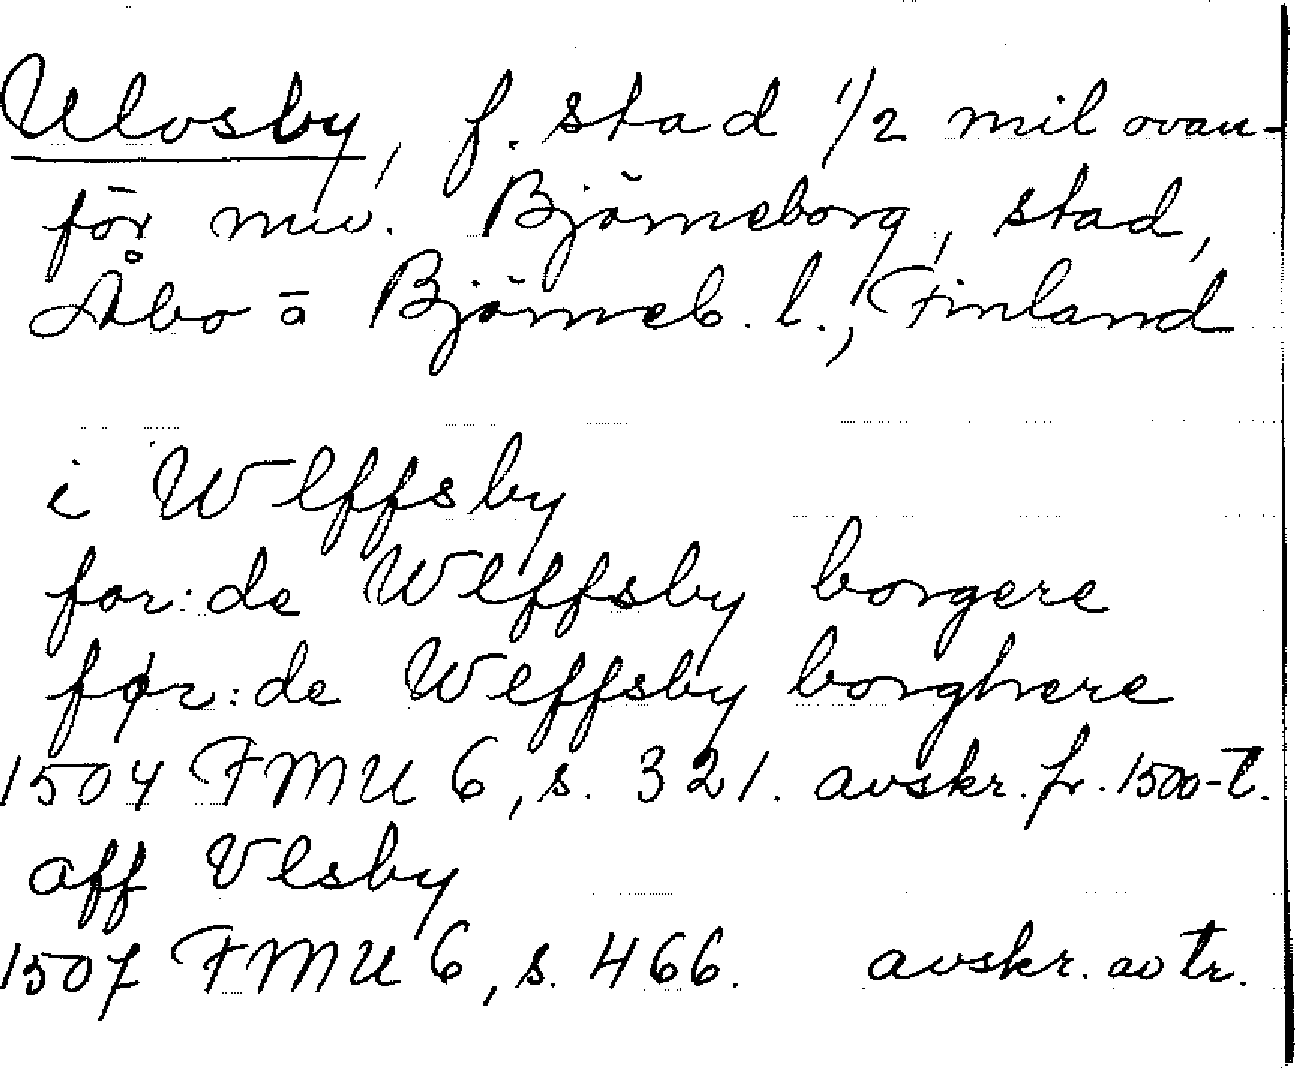 Ulvsby, f. stad 1/2 mil ovan-
för nuv. Björneborg, stad,
Åbo o Björneb. l., Finland
i Wlffsby
for:de Wlffsby borgere
før:de Wlffsby borghere
1504 FMU 6, s. 321. avskr. fr. 1500-t.
aff Vlsby
1507 FMU 6, s. 466. avskr. av tr.